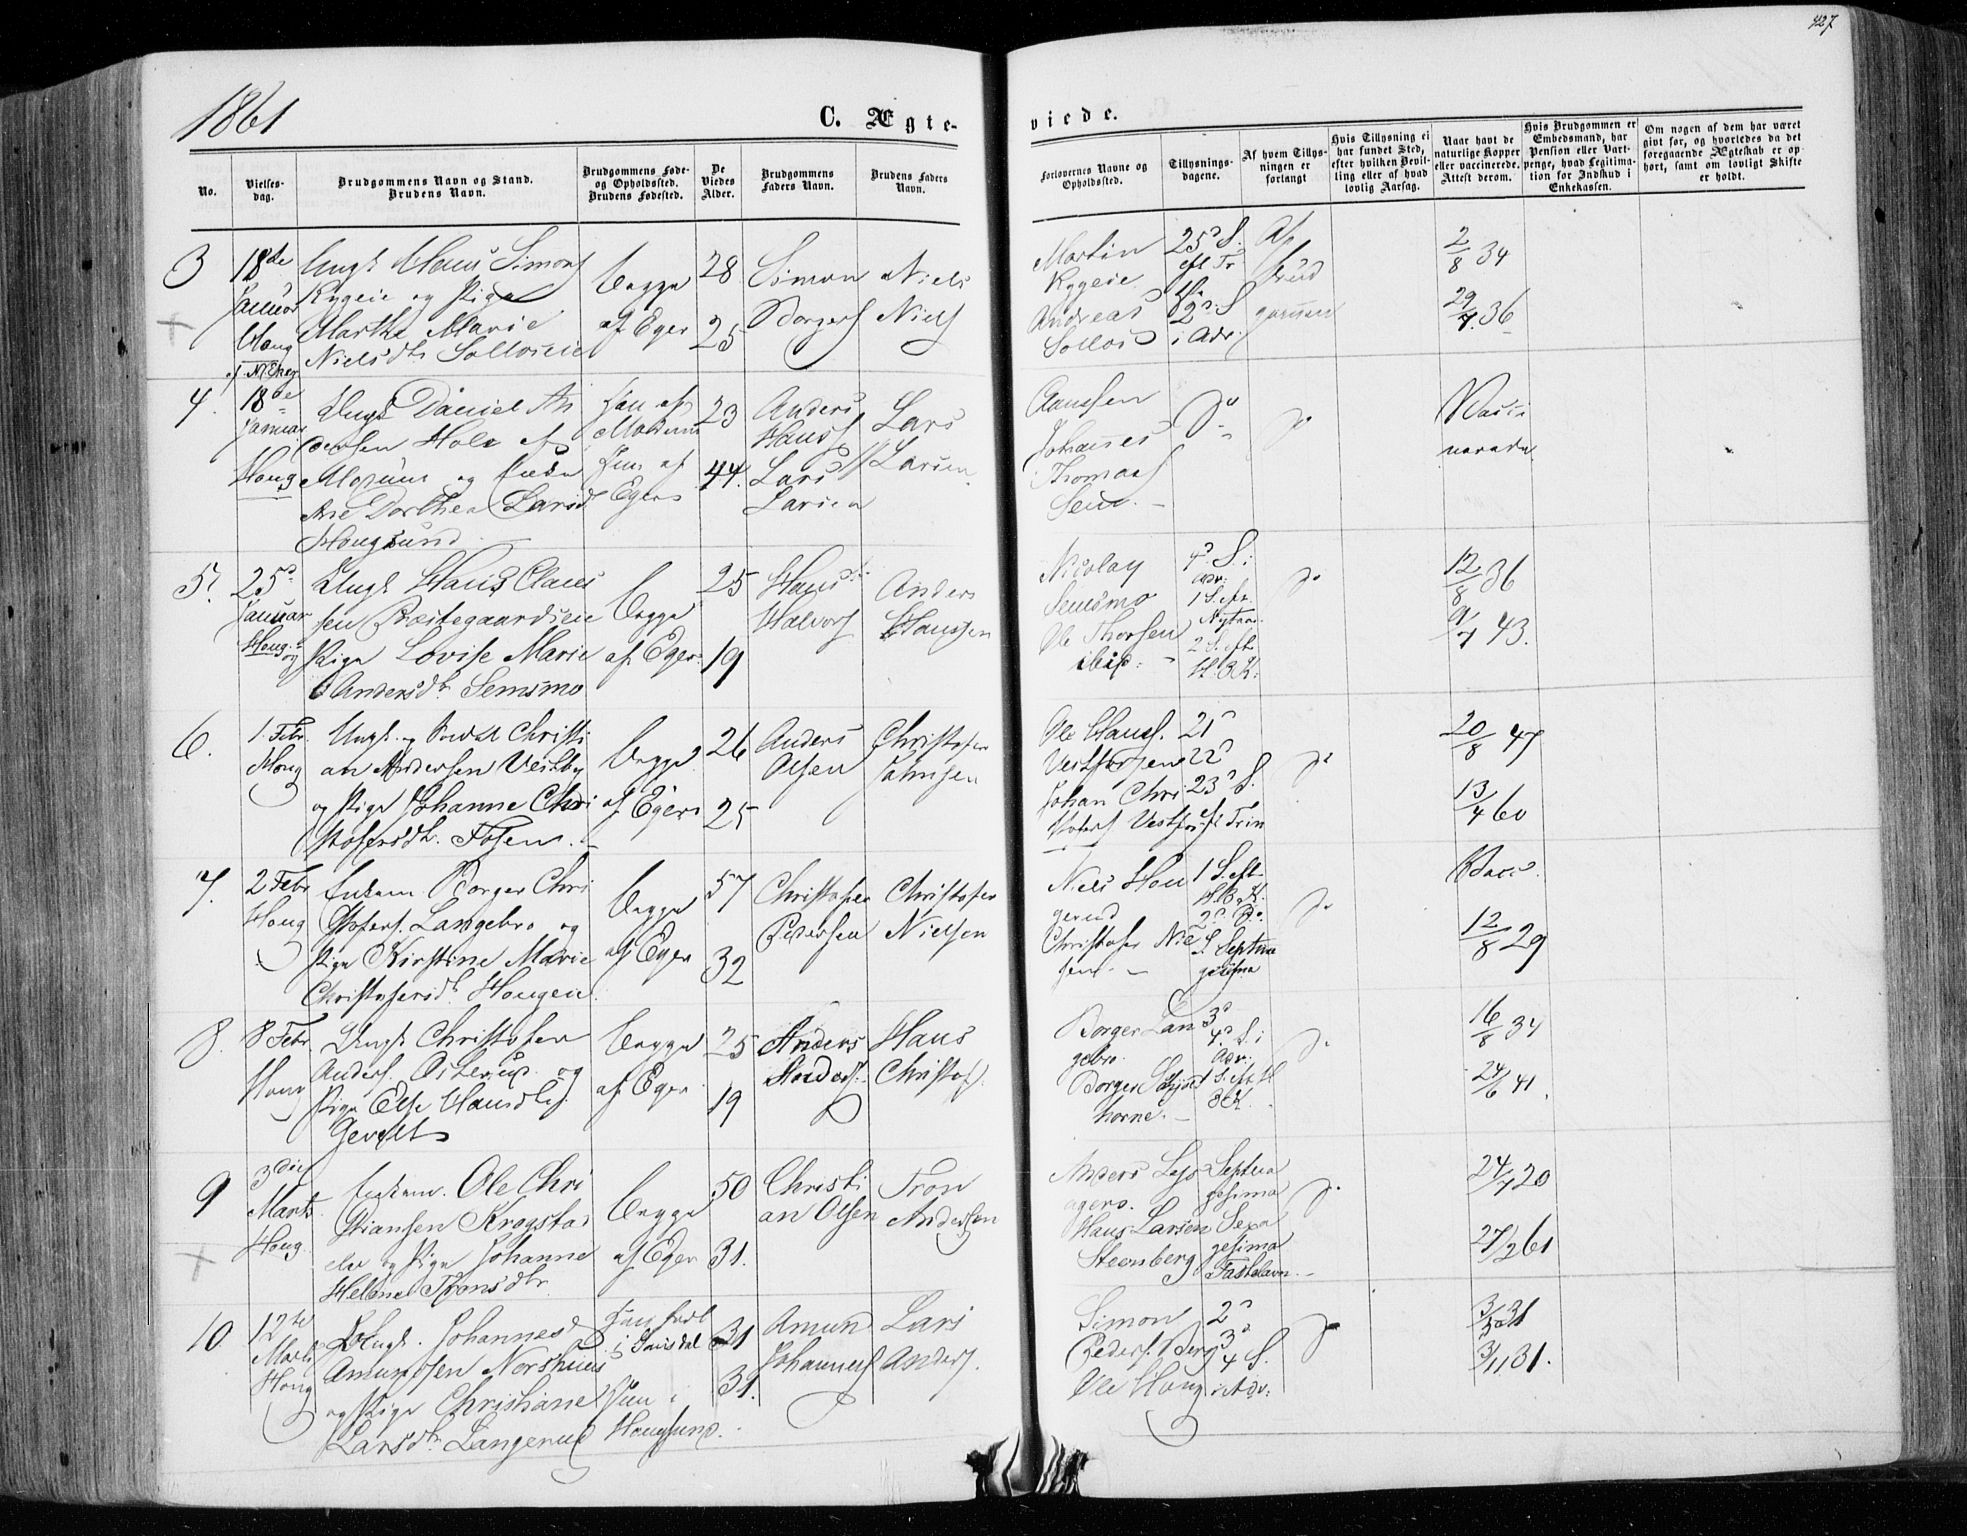 427
1861
C. Ægte-
viede.
No.
Vielses-
dag.
Brudgommens Navn og Stand.
Brudens Navn.
Brudgommens Føde-
og Opholdssted.
Brudens Fødested.
De
Viedes
Alder.
Brudgommens
Faders Navn.
Brudens Faders
Navn.
Forlovernes Navne og
Opholdssted.
Tillysnings-
dagene.
Af hvem Tillys-
ningen er
forlangt
Hvis Tillysning ei
har fundet Sted,
efter hvilken Bevil-
ling eller af hvad
lovlig Aarsag.
Naar havt de
naturlige Kopper
eller vaccinerede.
Attest derom.
Hvis Brudgommen er
Embedsmand, har
Pension eller Vart-
penge, hvad Legitima-
tion for Indskud i
Enkekassen.
Om nogen af dem har været
givt før, og hvorledes da det
foregaaende Ægteskab er op-
hørt, samt om lovligt Skifte
er holdt.
3
18de
Januar
Houg
Ungk Hans Simons
Rygeie og Pige
Martha Marie
Nielsdtr Solloseie
begge
af Eger
28
25
Simon
Borgers
Niels
Niels
Martin
Rygeie
Andreas
Sollos
25d S.
eft Tr
2d S
i Adv.
Af
Brud
gommen
2/8 34
29/7 36
4.
18de
Januar
Houg
Ungk Daniel An
dersen Hole af
Modum og Enke
Ane Dorthea Larsd
Hougsund
Han af
Modum
Hun af
Eger
23
44.
Anders
Hans
Lars
Larsen
Lars
Larsen
Aanssen
Johannes
Thomas
sen
do
do
Vacci
nerede
5.
25d
Januar
Houg
Ungk Hans Claus
sen Præstegaardseie
og Pige Lovise Marie
Andersdtr Semsmo
begge
af Eger
25
19
Hans
Halvors
Anders
Hanssen
Nicolay
Semsmo
Ole Thorsen
ibid:
4d S i
Adv:
1 S. eft.
Nytaar
2 S. eft
H. 3 K.
do
12/8 36
9/7 43.
6.
1. Febr.
Houg
Ungk. og Christi
an Andersen Vestby
og Pige Johanne Chri
stofersdtr. Fosen.
begge
af Eger
26
25
Anders
Olsen
Christofer
Johnsen
Ole Hans.
Vestfossen
Johan Chri
stofers Vestfos
21d
22d
23d S.
eft Trin
do
20/8 47
13/4 60
7.
2 Febr
Houg
Enkem Borger Chri
stofers. Langebro og
Pige Kirstine Marie
Christofersdtr. Hougen
begge
af Eger
57
32
Christofer
Pedersen
Christofer
Nielsen
Niels Hou
gerud
Christofer Niel
sen
1 S. eft
H. 3 K.
2d Do.
S. Septua
gesima
do
Vacc.
12/8 29
8.
8 Febr
Houg
Ungk Christofer
Anders. Østerud og
Pige Else Hansdtr
Gevelt
begge
af Eger
25
19
Anders
Anders.
Hans
Christof.
Borger Lan
gebro.
Borger
horne.
3d
4d S. i
Adv.
1 S. eft H
3 K.
do
16/8 34
24/6 41.
9
3die
Marts
Houg.
Enkem. Ole Chri
stiansen Krogstad
eie og Pige Johanne
Helene Tronsdtr
begge
af Eger
50
31.
Christi
an Olsen
Tron
Andersen
Anders Lejs
agero.
Hans Larsen
Steenberg
Septua
gesima
Sexa
gesima
Fastelavn.
do
24/7 20
27/2 61
10
12te
Marts
Houg
Ungk. Johannes
Amundsen Norshuus
og Pige Christiane
Larsdtr Langerud
Han født
i Gausdal
Hun i
Hougsund.
31
31.
Amund
Johannes
Lars
Anders.
Simon
Peders. Berg
Ole Houg
2d
3d
4 S.
i Adv:
do
3/11 31.